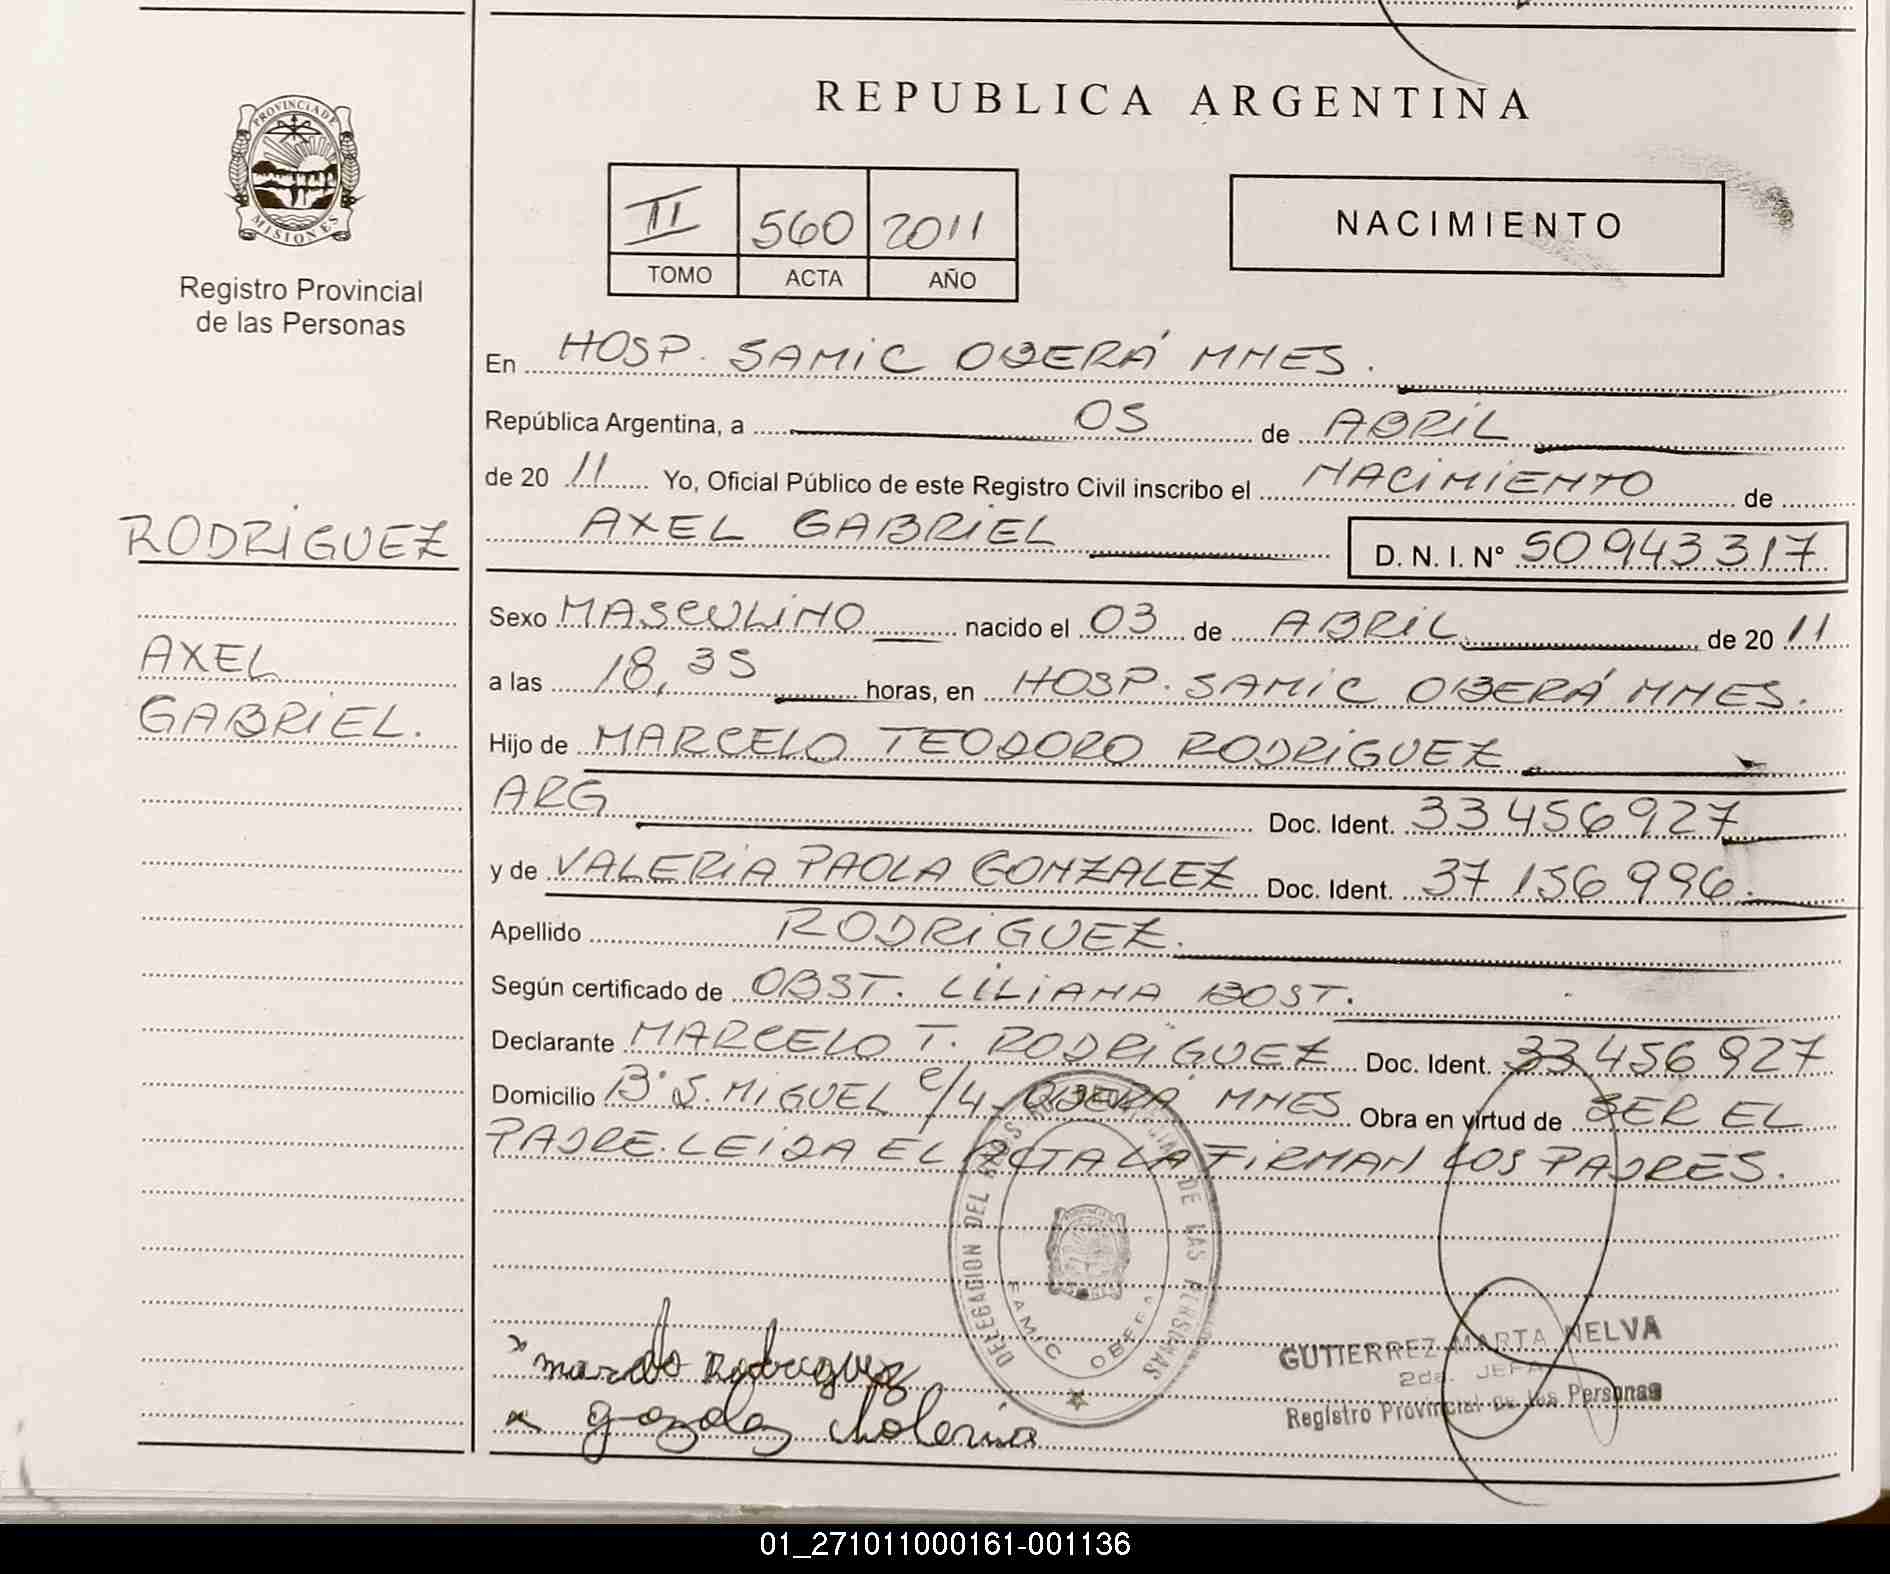 REPUBLICA ARGENTINA
PROVINCIA DE
MISIONES
Registro Provincial
de las Personas
II 560 2011
TOMO ACTA AÑO
NACIMIENTO
En HOSP. SAMIC OBERÁ MNES.
República Argentina, a 05 de ABRIL
de 20 11 Yo, Oficial Público de este Registro Civil inscribo el NACIMIENTO de
AXEL GABRIEL D. N. I. N° 50943317
RODRIGUEZ
AXEL
GABRIEL.
Sexo MASCULINO nacido el 03 de ABRIL de 20 11
a las 18,35 horas, en HOSP. SAMIC OBERÁ MNES.
Hijo de MARCELO TEODORO RODRIGUEZ
ARG Doc. Ident. 33456927
y de VALERIA PAOLA GONZALEZ Doc. Ident. 37156996.
Apellido RODRIGUEZ.
Según certificado de OBST. LILIANA BOST.
Declarante MARCELO T. RODRIGUEZ Doc. Ident. 33456927
Domicilio B° S. MIGUEL e/4 - OBERÁ MNES Obra en virtud de SER EL
PADRE. LEIDA EL ACTA LA FIRMAN LOS PADRES.
DELEGACION DEL DE LAS PERSONAS
OBERA
marcelo Rodriguez
GUTIERREZ MARTA NELVA
2da. JEFA
Registro Provincial de las Personas
01_271011000161-001136